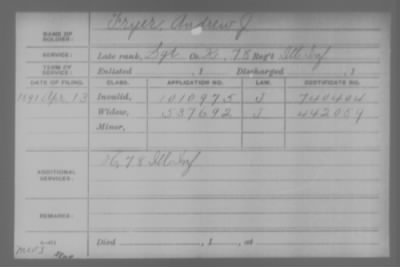 NAME OF SOLDIER: Fryer, Andrew J
SERVICE: Late rank, Sgt Co. K, 78 Reg't Ill Inf
TERM OF SERVICE: Enlisted , 1 Discharged , 1
DATE OF FILING. CLASS. APPLICATION NO. LAW. CERTIFICATE NO.
1891 Apr. 13 Invalid, 1010975 J 740404
Widow, 537692 J 442059
Minor,
ADDITIONAL SERVICES: 78 Ill Inf
REMARKS:
Died , 1 , at